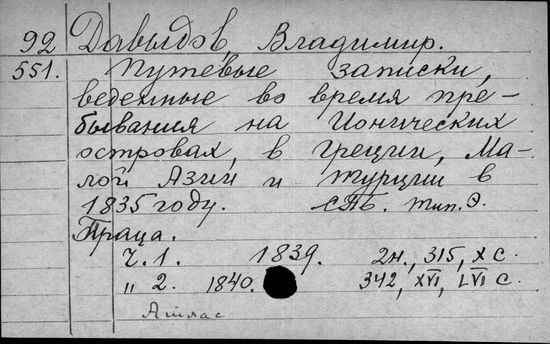 92 Давыдов, Владимир.
551. Путевые записки,
веденные во время пре-
бывания на Ионических
островах, в Греции, Ма-
лой Азии и Турции в
1835 году. СПб. Тип. Э.
Праца.
Ч. 1. 1839. 2н., 315, X с.
" 2. 1840. 342, XVI, LVI с.
Атлас